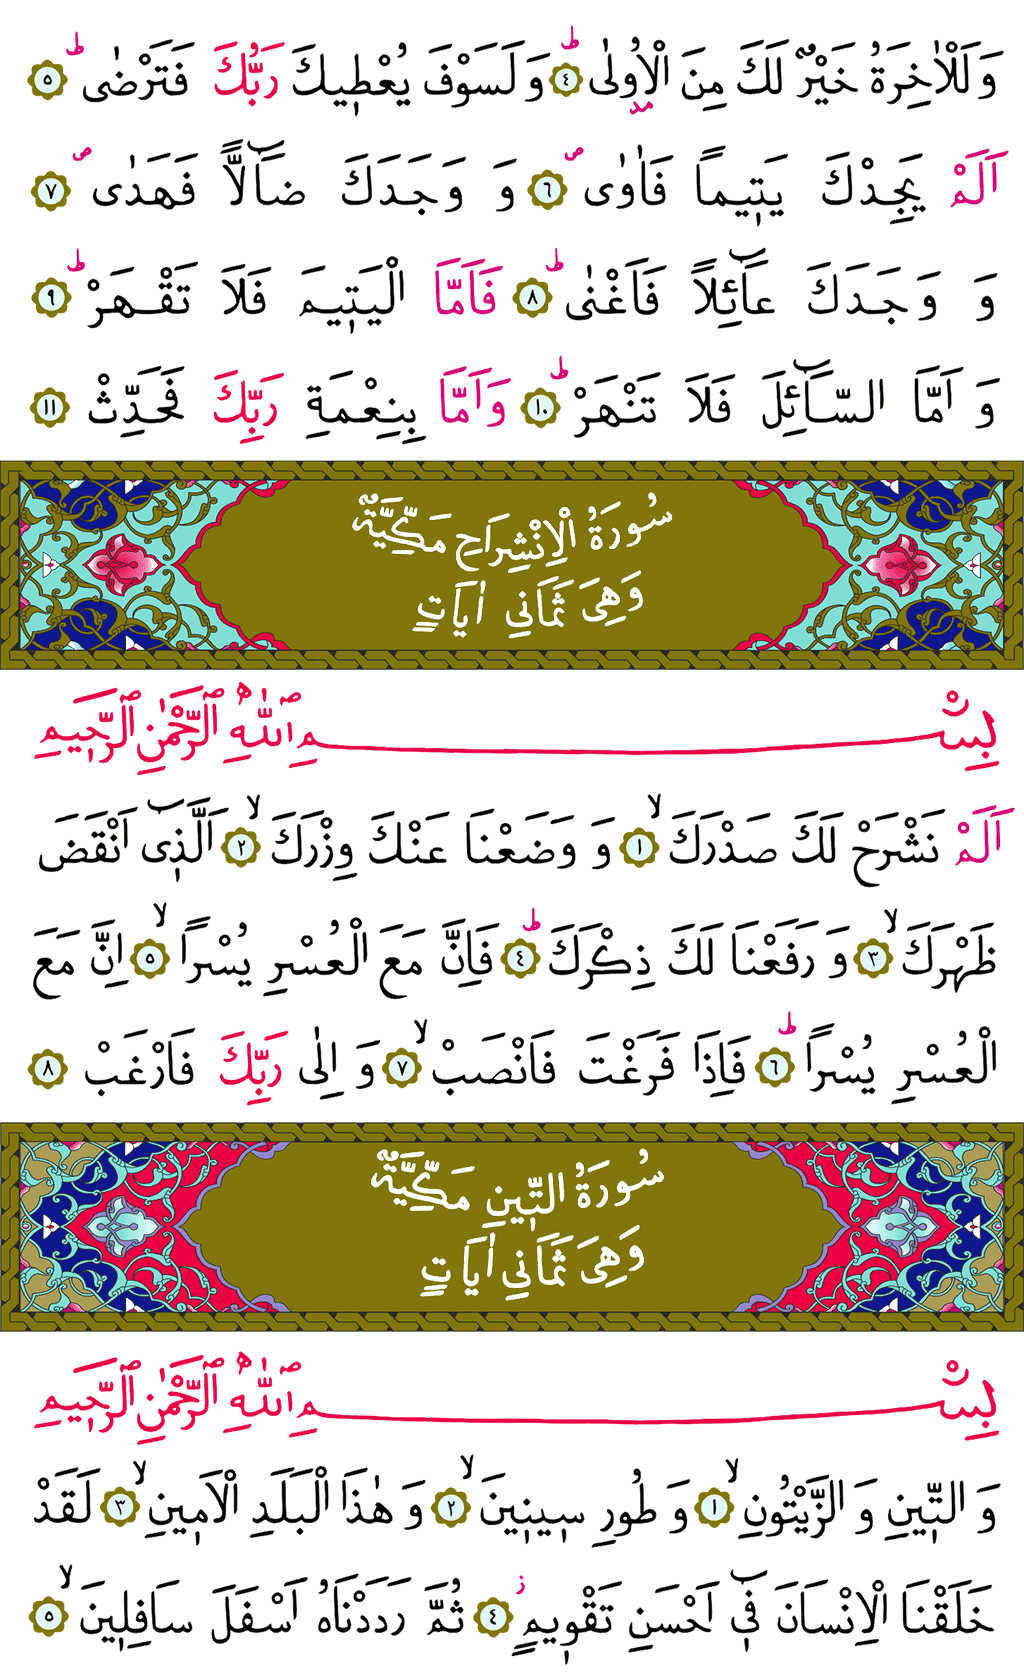 وَلَلْاٰخِرَةُ خَيْرٌ لَكَ مِنَ الْاُو۫لٰىۜ ﴿٤﴾ وَلَسَوْفَ يُعْط۪يكَ رَبُّكَ فَتَرْضٰىۜ ﴿٥﴾
اَلَمْ يَجِدْكَ يَت۪يماً فَاٰوٰىۖ ﴿٦﴾ وَ وَجَدَكَ ضَٓالاًّ فَهَدٰىۖ ﴿٧﴾
وَ وَجَدَكَ عَٓائِلاً فَاَغْنٰىۜ ﴿٨﴾ فَاَمَّا الْيَت۪يمَ فَلَا تَقْهَرْۜ ﴿٩﴾
وَ اَمَّا السَّٓائِلَ فَلَا تَنْهَرْۜ ﴿١٠﴾ وَاَمَّا بِنِعْمَةِ رَبِّكَ فَحَدِّثْ ﴿١١﴾
سُورَةُ الْاِنْشِرَاحِ مَكِّيَّةٌ
وَهِيَ ثَمَانِي اٰيَاتٍ
بِسْمِ اللّٰهِ الرَّحْمٰنِ الرَّح۪يمِ
اَلَمْ نَشْرَحْ لَكَ صَدْرَكَۙ ﴿١﴾ وَ وَضَعْنَا عَنْكَ وِزْرَكَۙ ﴿٢﴾ اَلَّذ۪ٓي اَنْقَضَ
ظَهْرَكَۙ ﴿٣﴾ وَ رَفَعْنَا لَكَ ذِكْرَكَۜ ﴿٤﴾ فَاِنَّ مَعَ الْعُسْرِ يُسْراًۙ ﴿٥﴾ اِنَّ مَعَ
الْعُسْرِ يُسْراًۜ ﴿٦﴾ فَاِذَا فَرَغْتَ فَانْصَبْۙ ﴿٧﴾ وَ اِلٰى رَبِّكَ فَارْغَبْ ﴿٨﴾
سُورَةُ التّ۪ينِ مَكِّيَّةٌ
وَهِيَ ثَمَانِي اٰيَاتٍ
بِسْمِ اللّٰهِ الرَّحْمٰنِ الرَّح۪يمِ
وَ التّ۪ينِ وَ الزَّيْتُونِۙ ﴿١﴾ وَ طُورِ س۪ين۪ينَۙ ﴿٢﴾ وَ هٰذَا الْبَلَدِ الْاَم۪ينِۙ ﴿٣﴾ لَقَدْ
خَلَقْنَا الْاِنْسَانَ ف۪ٓي اَحْسَنِ تَقْو۪يمٍۘ ﴿٤﴾ ثُمَّ رَدَدْنَاهُ اَسْفَلَ سَافِل۪ينَۙ ﴿٥﴾